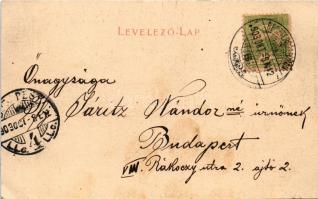 LEVELEZŐ-LAP
Őnagysága
Páritz Nándor né úrnőnek
Budapest
VIII. Rákóczy utca 2. ajtó 2.